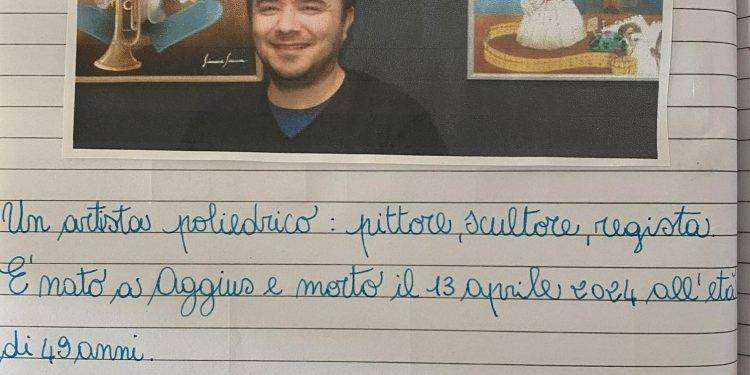 Un artista poliedrico : pittore, scultore, regista.
E' nato a Aggius e morto il 13 aprile 2024 all'età
di 49 anni.